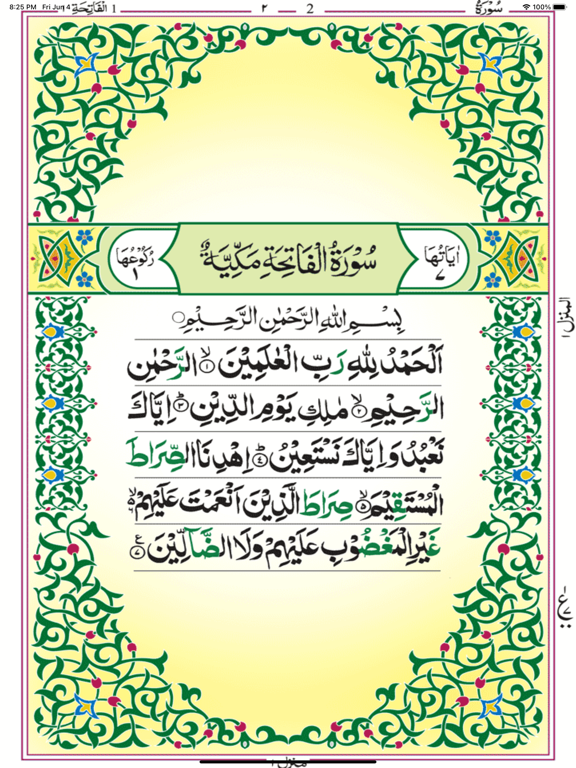 8:25 PM Fri Jun 4 100%
سُوْرَةُ 2 — ٢ — 1 اَلْفَاتِحَةِ
اٰيَاتُهَا ٧ سُوْرَةُ الْفَاتِحَةِ مَكِّيَّةٌ رُكُوْعُهَا ١
بِسْمِ اللّٰهِ الرَّحْمٰنِ الرَّحِيْمِ
اَلْحَمْدُ لِلّٰهِ رَبِّ الْعٰلَمِيْنَ ۙ﴿١﴾ الرَّحْمٰنِ
الرَّحِيْمِ ۙ﴿٢﴾ مٰلِكِ يَوْمِ الدِّيْنِ ؕ﴿٣﴾ اِيَّاكَ
نَعْبُدُ وَاِيَّاكَ نَسْتَعِيْنُ ؕ﴿٤﴾ اِهْدِنَا الصِّرَاطَ
الْمُسْتَقِيْمَ ۙ﴿٥﴾ صِرَاطَ الَّذِيْنَ اَنْعَمْتَ عَلَيْهِمْ ۙ﴿٦﴾
غَيْرِ الْمَغْضُوْبِ عَلَيْهِمْ وَلَا الضَّآلِّيْنَ ﴿٧﴾ ع
المنزل ١
ع
منزل ١